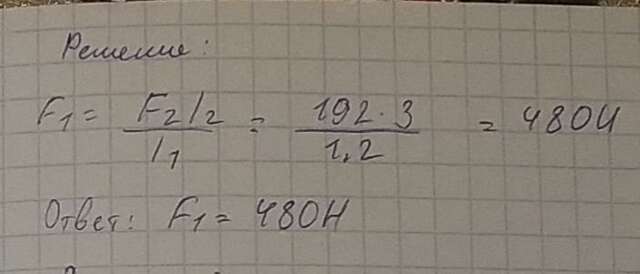 Решение:
F₁ = F₂l₂ / l₁ = 192 · 3 / 1,2 = 480Н
Ответ: F₁ = 480Н